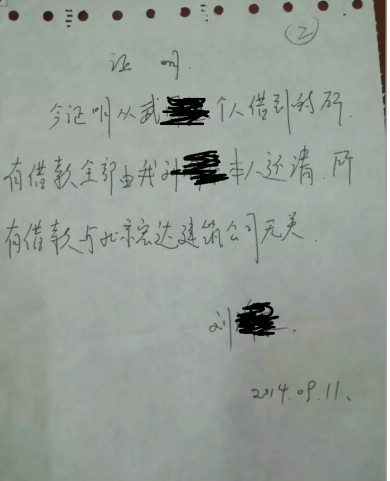 ②
证明.
今证明从武 个人借到的所
有借款全部由我刘 本人还清.所
有借款与北京宏达建筑公司无关.
刘 .
2014.09.11、